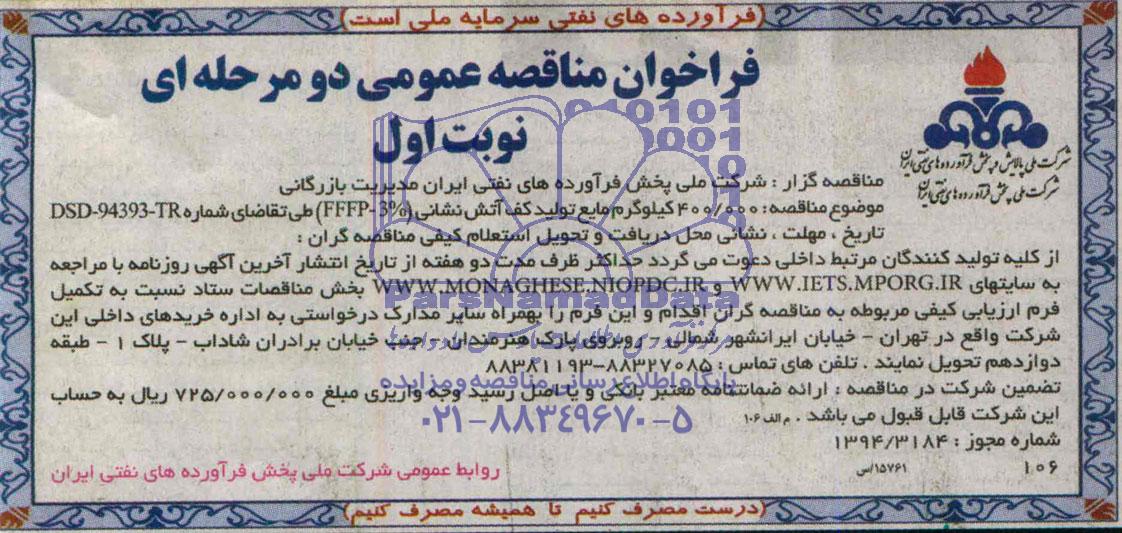 (فرآورده های نفتی سرمایه ملی است)
فراخوان مناقصه عمومی دو مرحله ای
نوبت اول
شرکت ملی پالایش و پخش فرآورده های نفتی ایران
شرکت ملی پخش فرآورده های نفتی ایران
مناقصه گزار : شرکت ملی پخش فرآورده های نفتی ایران مدیریت بازرگانی
موضوع مناقصه: ۴۰۰/۰۰۰ کیلوگرم مایع تولید کف آتش نشانی (FFFP-3%) طی تقاضای شماره DSD-94393-TR
تاریخ ، مهلت ، نشانی محل دریافت و تحویل استعلام کیفی مناقصه گران :
از کلیه تولید کنندگان مرتبط داخلی دعوت می گردد حداکثر ظرف مدت دو هفته از تاریخ انتشار آخرین آگهی روزنامه با مراجعه
به سایتهای WWW.IETS.MPORG.IR و WWW.MONAGHESE.NIOPDC.IR بخش مناقصات ستاد نسبت به تکمیل
فرم ارزیابی کیفی مربوطه به مناقصه گران اقدام و این فرم را بهمراه سایر مدارک درخواستی به اداره خریدهای داخلی این
شرکت واقع در تهران - خیابان ایرانشهر شمالی - روبروی پارک هنرمندان - جنب خیابان برادران شاداب - پلاک ۱ - طبقه
دوازدهم تحویل نمایند . تلفن های تماس : ۸۸۳۲۷۰۸۵-۸۸۳۸۱۱۹۳
تضمین شرکت در مناقصه : ارائه ضمانتنامه معتبر بانکی و یا اصل رسید وجه واریزی مبلغ ۷۲۵/۰۰۰/۰۰۰ ریال به حساب
این شرکت قابل قبول می باشد . م الف ۱۰۶
شماره مجوز : ۱۳۹۴/۳۱۸۴
۱۰۶ ۱۵۷۶۱/س
روابط عمومی شرکت ملی پخش فرآورده های نفتی ایران
(درست مصرف کنیم تا همیشه مصرف کنیم)
ParsNamadData
پایگاه اطلاع رسانی مناقصه و مزایده
۰۲۱-۸۸۳۴۹۶۷۰-۵